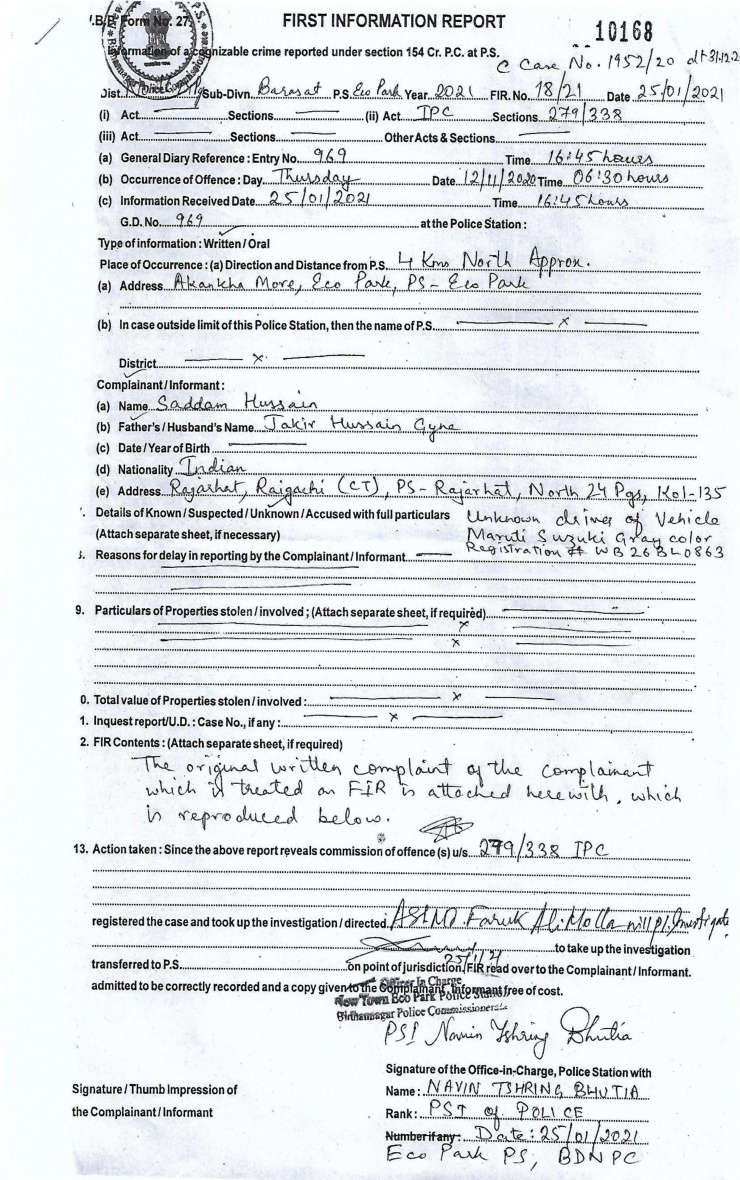 .B.B. Form No. 27
FIRST INFORMATION REPORT
10168
Information of a cognizable crime reported under section 154 Cr. P.C. at P.S.
C Case No. 1952/20 dt-31.12.2
Bidhannagar Police Commissionerate
Dist. Sub-Divn. Barasat P.S. Eco Park Year 2021 FIR. No. 18/21 Date 25/01/2021
(i) Act Sections (ii) Act IPC Sections 279/338
(iii) Act Sections Other Acts & Sections
(a) General Diary Reference : Entry No. 969 Time 16:45 hours
(b) Occurrence of Offence : Day Thursday Date 12/11/2020 Time 06:30 hours
(c) Information Received Date 25/01/2021 Time 16:45 hours
G.D. No. 969 at the Police Station :
Type of information : Written / Oral
Place of Occurrence : (a) Direction and Distance from P.S. 4 Kms North Approx.
(a) Address Akankha More, Eco Park, PS - Eco Park
(b) In case outside limit of this Police Station, then the name of P.S. x
District x
Complainant / Informant :
(a) Name Saddam Hussain
(b) Father's / Husband's Name Jakir Hussain Gyne
(c) Date / Year of Birth
(d) Nationality Indian
(e) Address Rajarhat, Raigachi (CT), PS - Rajarhat, North 24 Pgs, Kol-135
Details of Known / Suspected / Unknown / Accused with full particulars Unknown driver of Vehicle
(Attach separate sheet, if necessary) Maruti Suzuki Gray color
Registration # WB 26 BL 0863
Reasons for delay in reporting by the Complainant / Informant
9. Particulars of Properties stolen / involved ; (Attach separate sheet, if required)
x
x
0. Total value of Properties stolen / involved : x
1. Inquest report / U.D. : Case No., if any : x
2. FIR Contents : (Attach separate sheet, if required)
The original written complaint of the complainant
which is treated as FIR is attached herewith, which
is reproduced below.
13. Action taken : Since the above report reveals commission of offence (s) u/s. 279/338 IPC
registered the case and took up the investigation / directed ASI MD. Faruk Ali Molla will pl. Investigate
to take up the investigation
25/1/21
transferred to P.S. on point of jurisdiction. FIR read over to the Complainant / Informant.
admitted to be correctly recorded and a copy given to the Complainant, Informant free of cost.
Officer In Charge
New Town Eco Park Police Station
Bidhannagar Police Commissionerate
PSI Navin Tshring Bhutia
Signature of the Office-in-Charge, Police Station with
Signature / Thumb Impression of
the Complainant / Informant
Name : NAVIN TSHRING BHUTIA
Rank : PSI of POLICE
Number if any : Date : 25/01/2021
Eco Park PS, BDNPC